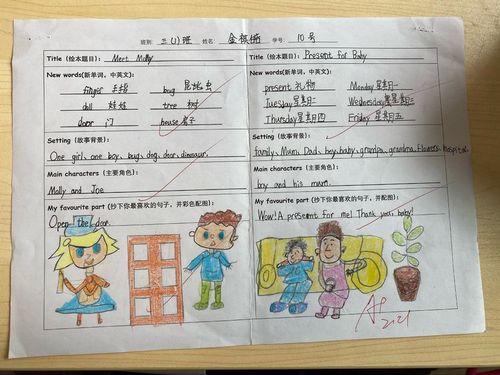 班别: 三(1)班 姓名: 学号: 10号
Title (绘本题目): Meet Molly
New words(新单词，中英文):
finger 手指 bug 昆虫
doll 娃娃 tree 树
door 门 house 房子
Setting (故事背景):
One girl, one boy, bug, dog, door, dinosaur.
Main characters (主要角色):
Molly and Joe
My favourite part (抄下你最喜欢的句子，并彩色配图):
Open the door.
Title (绘本题目): Present for Baby
New words(新单词，中英文):
present 礼物 Monday 星期一
Tuesday 星期二 Wednesday 星期三
Thursday 星期四 Friday 星期五
Setting (故事背景):
family, Mum, Dad, boy, baby, grandpa, grandma, flowers, hospital.
Main characters (主要角色):
boy and his mum.
My favourite part (抄下你最喜欢的句子，并配图):
Wow! A present for me! Thank you, baby!
A+